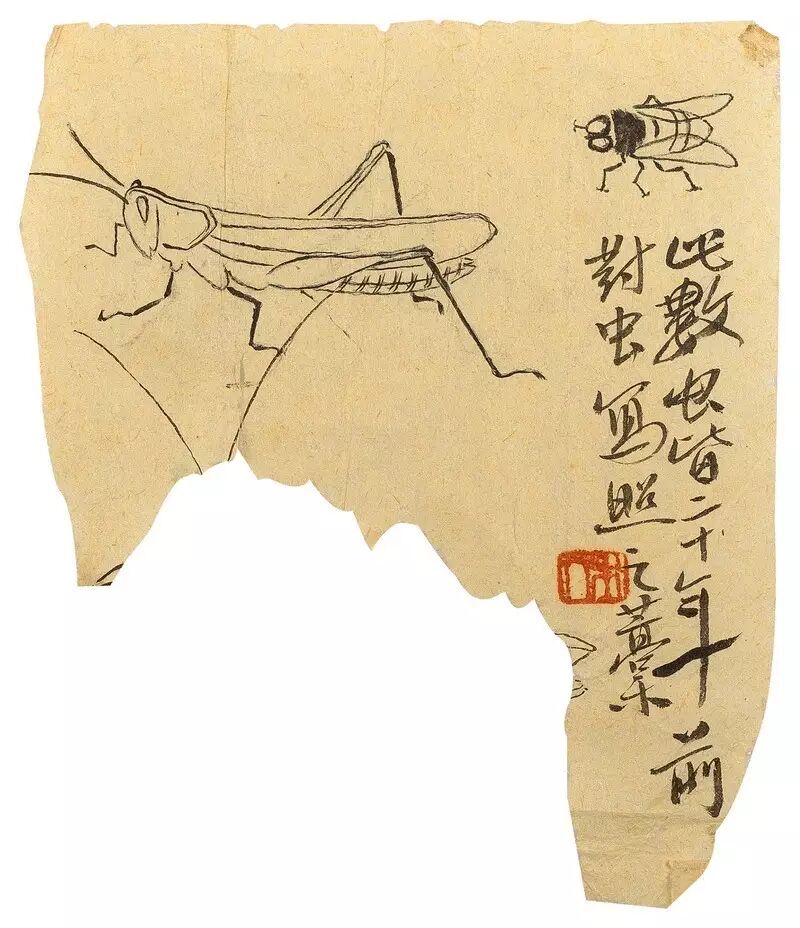 此數虫皆二十年前
對虫寫照之藁